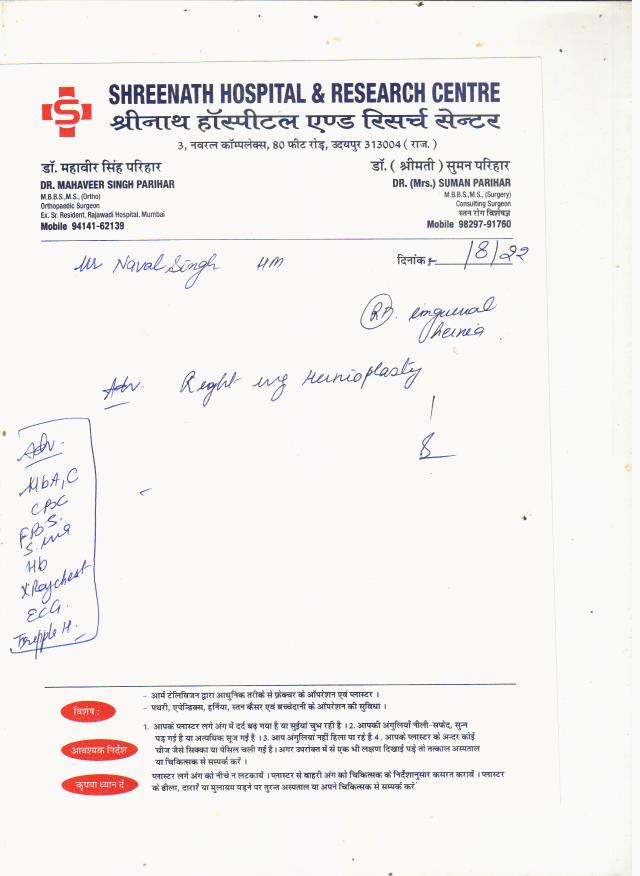 SHREENATH HOSPITAL & RESEARCH CENTRE
श्रीनाथ हॉस्पीटल एण्ड रिसर्च सेन्टर
3, नवरत्न कॉम्पलेक्स, 80 फीट रोड़, उदयपुर 313004 ( राज. )
डॉ. महावीर सिंह परिहार
DR. MAHAVEER SINGH PARIHAR
M.B.B.S.,M.S., (Ortho)
Orthopaedic Surgeon
Ex. Sr. Resident, Rajawadi Hospital, Mumbai
Mobile 94141-62139
डॉ. ( श्रीमती ) सुमन परिहार
DR. (Mrs.) SUMAN PARIHAR
M.B.B.S.,M.S., (Surgery)
Consulting Surgeon
स्तन रोग विशेषज्ञ
Mobile 98297-91760
Mr Naval Singh HM
दिनांक :- /8/22
Rt. inguenal
hernia
Adv. Right ing Hernioplasty
Adv.
HbA,C
CBC
F.B.S.
Hb
X Ray chest
ECG.
Tripple H.
विशेष :
- आर्म टेलिविजन द्वारा आधुनिक तरीके से फ्रेक्चर के ऑपरेशन एवं प्लास्टर ।
- पथरी, एपेन्डिक्स, हर्निया, स्तन कैंसर एवं बच्चेदानी के ऑपरेशन की सुविधा ।
आवश्यक निर्देश
1. आपके प्लास्टर लगे अंग में दर्द बढ़ गया है या सुईयां चुभ रही है । 2. आपकी अंगुलियाँ नीली-सफेद, सुन्न
पड़ गई है या अत्यधिक सूज गई है । 3. आप अंगुलियां नहीं हिला पा रहे है 4 . आपके प्लास्टर के अन्दर कोई
चीज जैसे सिक्का या पेन्सिल चली गई है । अगर उपरोक्त में से एक भी लक्षण दिखाई पड़े तो तत्काल अस्पताल
या चिकित्सक से सम्पर्क करें ।
कृपया ध्यान दें :
प्लास्टर लगे अंग को नीचे न लटकायें । प्लास्टर से बाहरी अंग को चिकित्सक के निर्देशानुसार कसरत करावें । प्लास्टर
के ढीला, दारारें या मुलायम पड़ने पर तुरन्त अस्पताल या अपने चिकित्सक से सम्पर्क करें